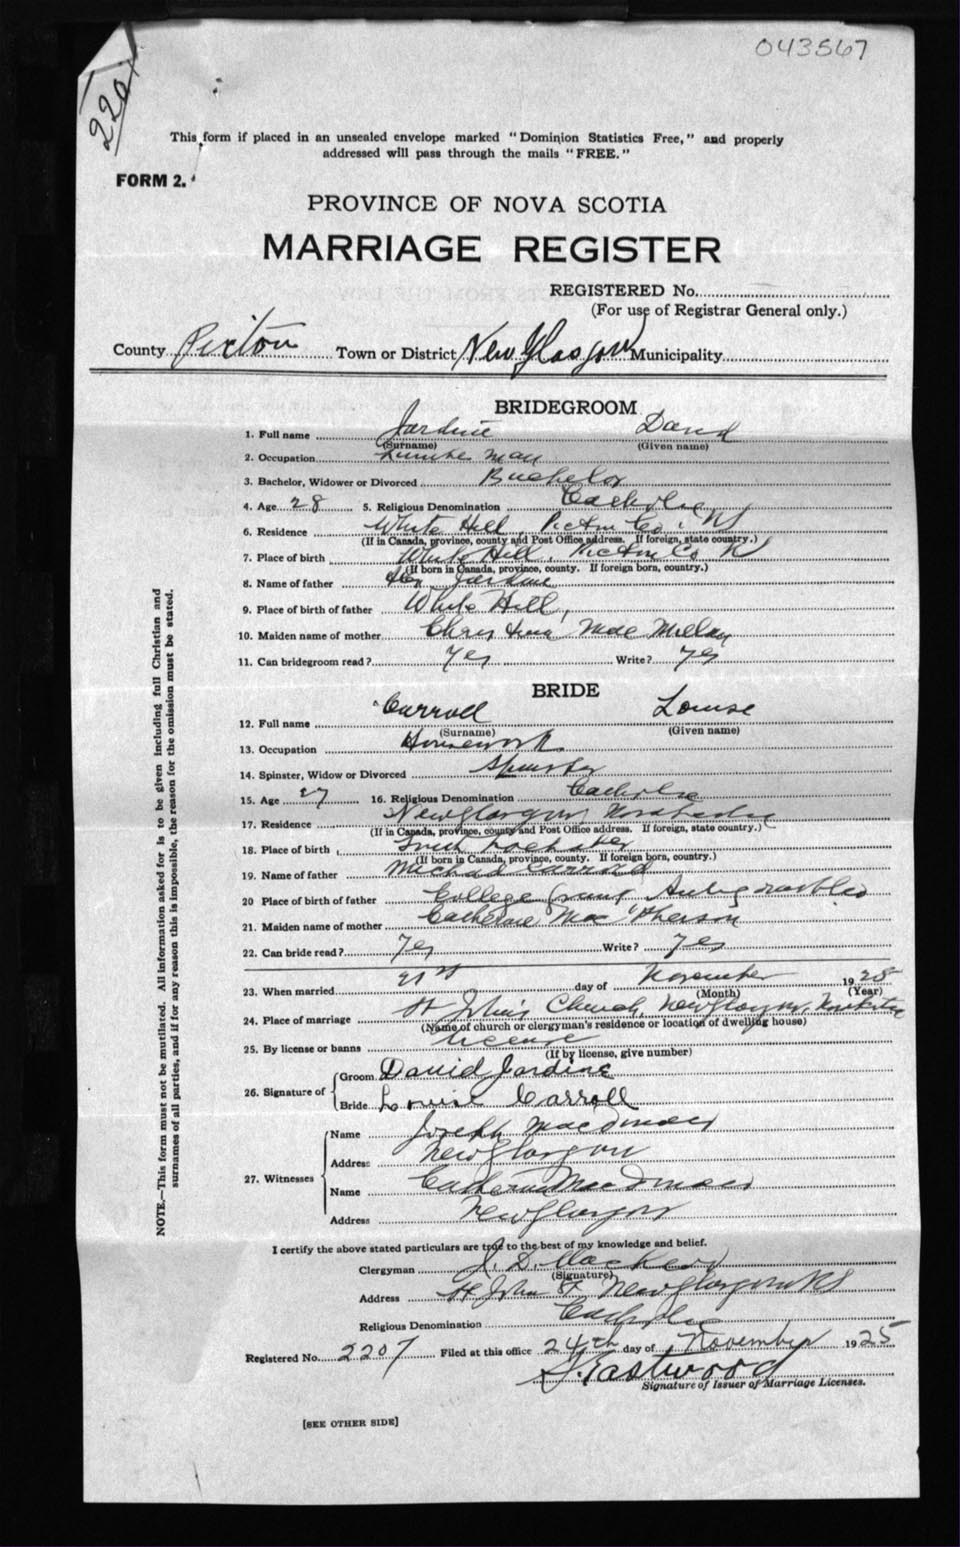 043567
220
This form if placed in an unsealed envelope marked "Dominion Statistics Free," and properly
addressed will pass through the mails "FREE."
FORM 2.
PROVINCE OF NOVA SCOTIA
MARRIAGE REGISTER
REGISTERED No.
(For use of Registrar General only.)
County Pictou Town or District New Glasgow Municipality
BRIDEGROOM
1. Full name Jardine David
(Surname) (Given name)
2. Occupation Lumber man
3. Bachelor, Widower or Divorced Bachelor
4. Age 28 5. Religious Denomination Catholic
6. Residence White Hill, Pictou Co. NS
(If in Canada, province, county and Post Office address. If foreign, state country.)
7. Place of birth White Hill, Pictou Co N
(If born in Canada, province, county. If foreign born, country.)
8. Name of father Alex Jardine
9. Place of birth of father White Hill,
10. Maiden name of mother Christena Mac Millan
11. Can bridegroom read? Yes Write? Yes
BRIDE
12. Full name Carroll Louise
(Surname) (Given name)
13. Occupation Housework
14. Spinster, Widow or Divorced Spinster
15. Age 27 16. Religious Denomination Catholic
17. Residence New Glasgow Nova Scotia
(If in Canada, province, county and Post Office address. If foreign, state country.)
18. Place of birth
(If born in Canada, province, county. If foreign born, country.)
19. Name of father Michael Carroll
20 Place of birth of father College Grant Antigonish Co
21. Maiden name of mother Catherine Mac Pherson
22. Can bride read? Yes Write? Yes
23. When married 21st day of November 1925
(Month) (Year)
24. Place of marriage St John's Church, New Glasgow, Nova Scotia
(Name of church or clergyman's residence or location of dwelling house)
25. By license or banns License
(If by license, give number)
26. Signature of Groom David Jardine
Bride Louise Carroll
27. Witnesses Name Joseph MacDonald
Address New Glasgow
Name Catherine MacDonald
Address New Glasgow
I certify the above stated particulars are true to the best of my knowledge and belief.
Clergyman J. D. Mac
(Signature)
Address St John New Glasgow NS
Religious Denomination Catholic
Registered No. 2207 Filed at this office 24th day of November 1925
S. Eastwood
Signature of Issuer of Marriage Licenses.
[SEE OTHER SIDE]
NOTE.—This form must not be mutilated. All information asked for is to be given including full Christian and
surnames of all parties, and if for any reason this is impossible, the reason for the omission must be stated.